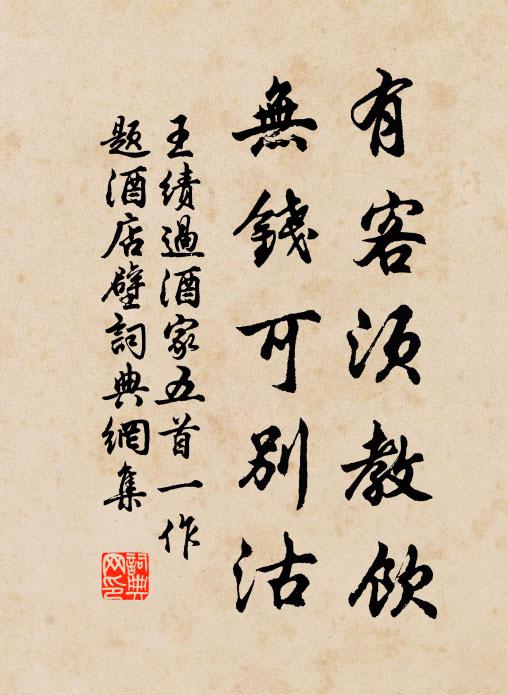 有客須教飲
無錢可別沽
王績過酒家五首一作
題酒店壁詞典網集
詞典
网印